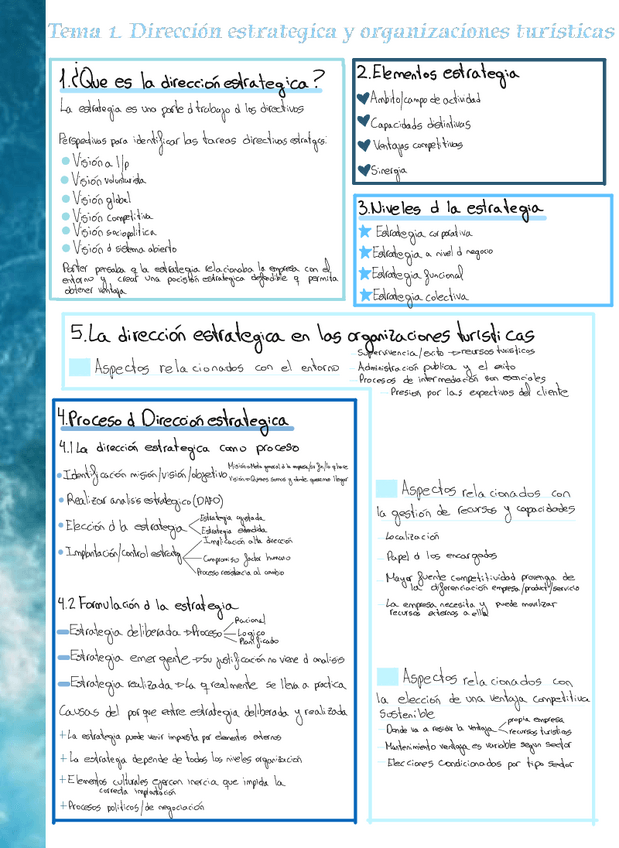 Tema 1. Dirección estrategica y organizaciones turísticas
1.¿Que es la dirección estrategica?
La estrategia es una parte d trabajo d los directivos
Perspectivas para identificar las tareas directivas estratgcs:
Visión a l/p
Visión voluntarida
Visión global
Visión competitiva
Visión sociopolitica
Visión d sistema abierto
Porter pensaba q la estrategia relacionaba la empresa con el
entorno y crear una posición estrategica defendible q permita
obtener ventaja
2.Elementos estrategia
Ambito/campo de actividad
Capacidads distintivas
Ventajas competitivas
Sinergia
3.Niveles d la estrategia
Estrategia corporativa
Estrategia a nivel d negocio
Estrategia funcional
Estrategia colectiva
5.La dirección estrategica en las organizaciones turísticas
Aspectos relacionados con el entorno
Supervivencia/exito → recursos turisticos
Administración publica y el exito
Procesos de intermediación son esenciales
Presion por las expectivas del cliente
4.Proceso d Dirección estrategica
4.1 La dirección estrategica como proceso
Identificación misión/visión/objetivo
Realizar analisis estrategico (DAFO)
Elección d la estrategia
Estrategia ajustada
Estrategia extendida
Implantación/control estrateg
Implicación alta dirección
Compromiso factor humano
Proceso resistencia al cambio
4.2 Formulación d la estrategia
Estrategia deliberada → Proceso
Racional
Logico
Planificado
Estrategia emergente → Su justificación no viene d analisis
Estrategia realizada → La q realmente se lleva a practica
Causas del por que entre estrategia deliberada y realizada
+ La estrategia puede venir impuesta por elementos externos
+ La estrategia depende de todos los niveles organización
+ Elementos culturales ejercen inercia que impida la
correcta implantación
+ Procesos politicos/de negociación
Aspectos relacionados con
la gestión de recursos y capacidades
Localización
Papel d los encargados
Mayor fuente competitividad provenga de
la diferenciación empresa/product/servicio
La empresa necesita y puede movilizar
recursos externos a ella
Aspectos relacionados con
la elección de una ventaja competitiva
sostenible
Donde va a residir la ventaja
propia empresa
recursos turistias
Mantenimiento ventaja es variable segun sector
Elecciones condicionados por tipo sector